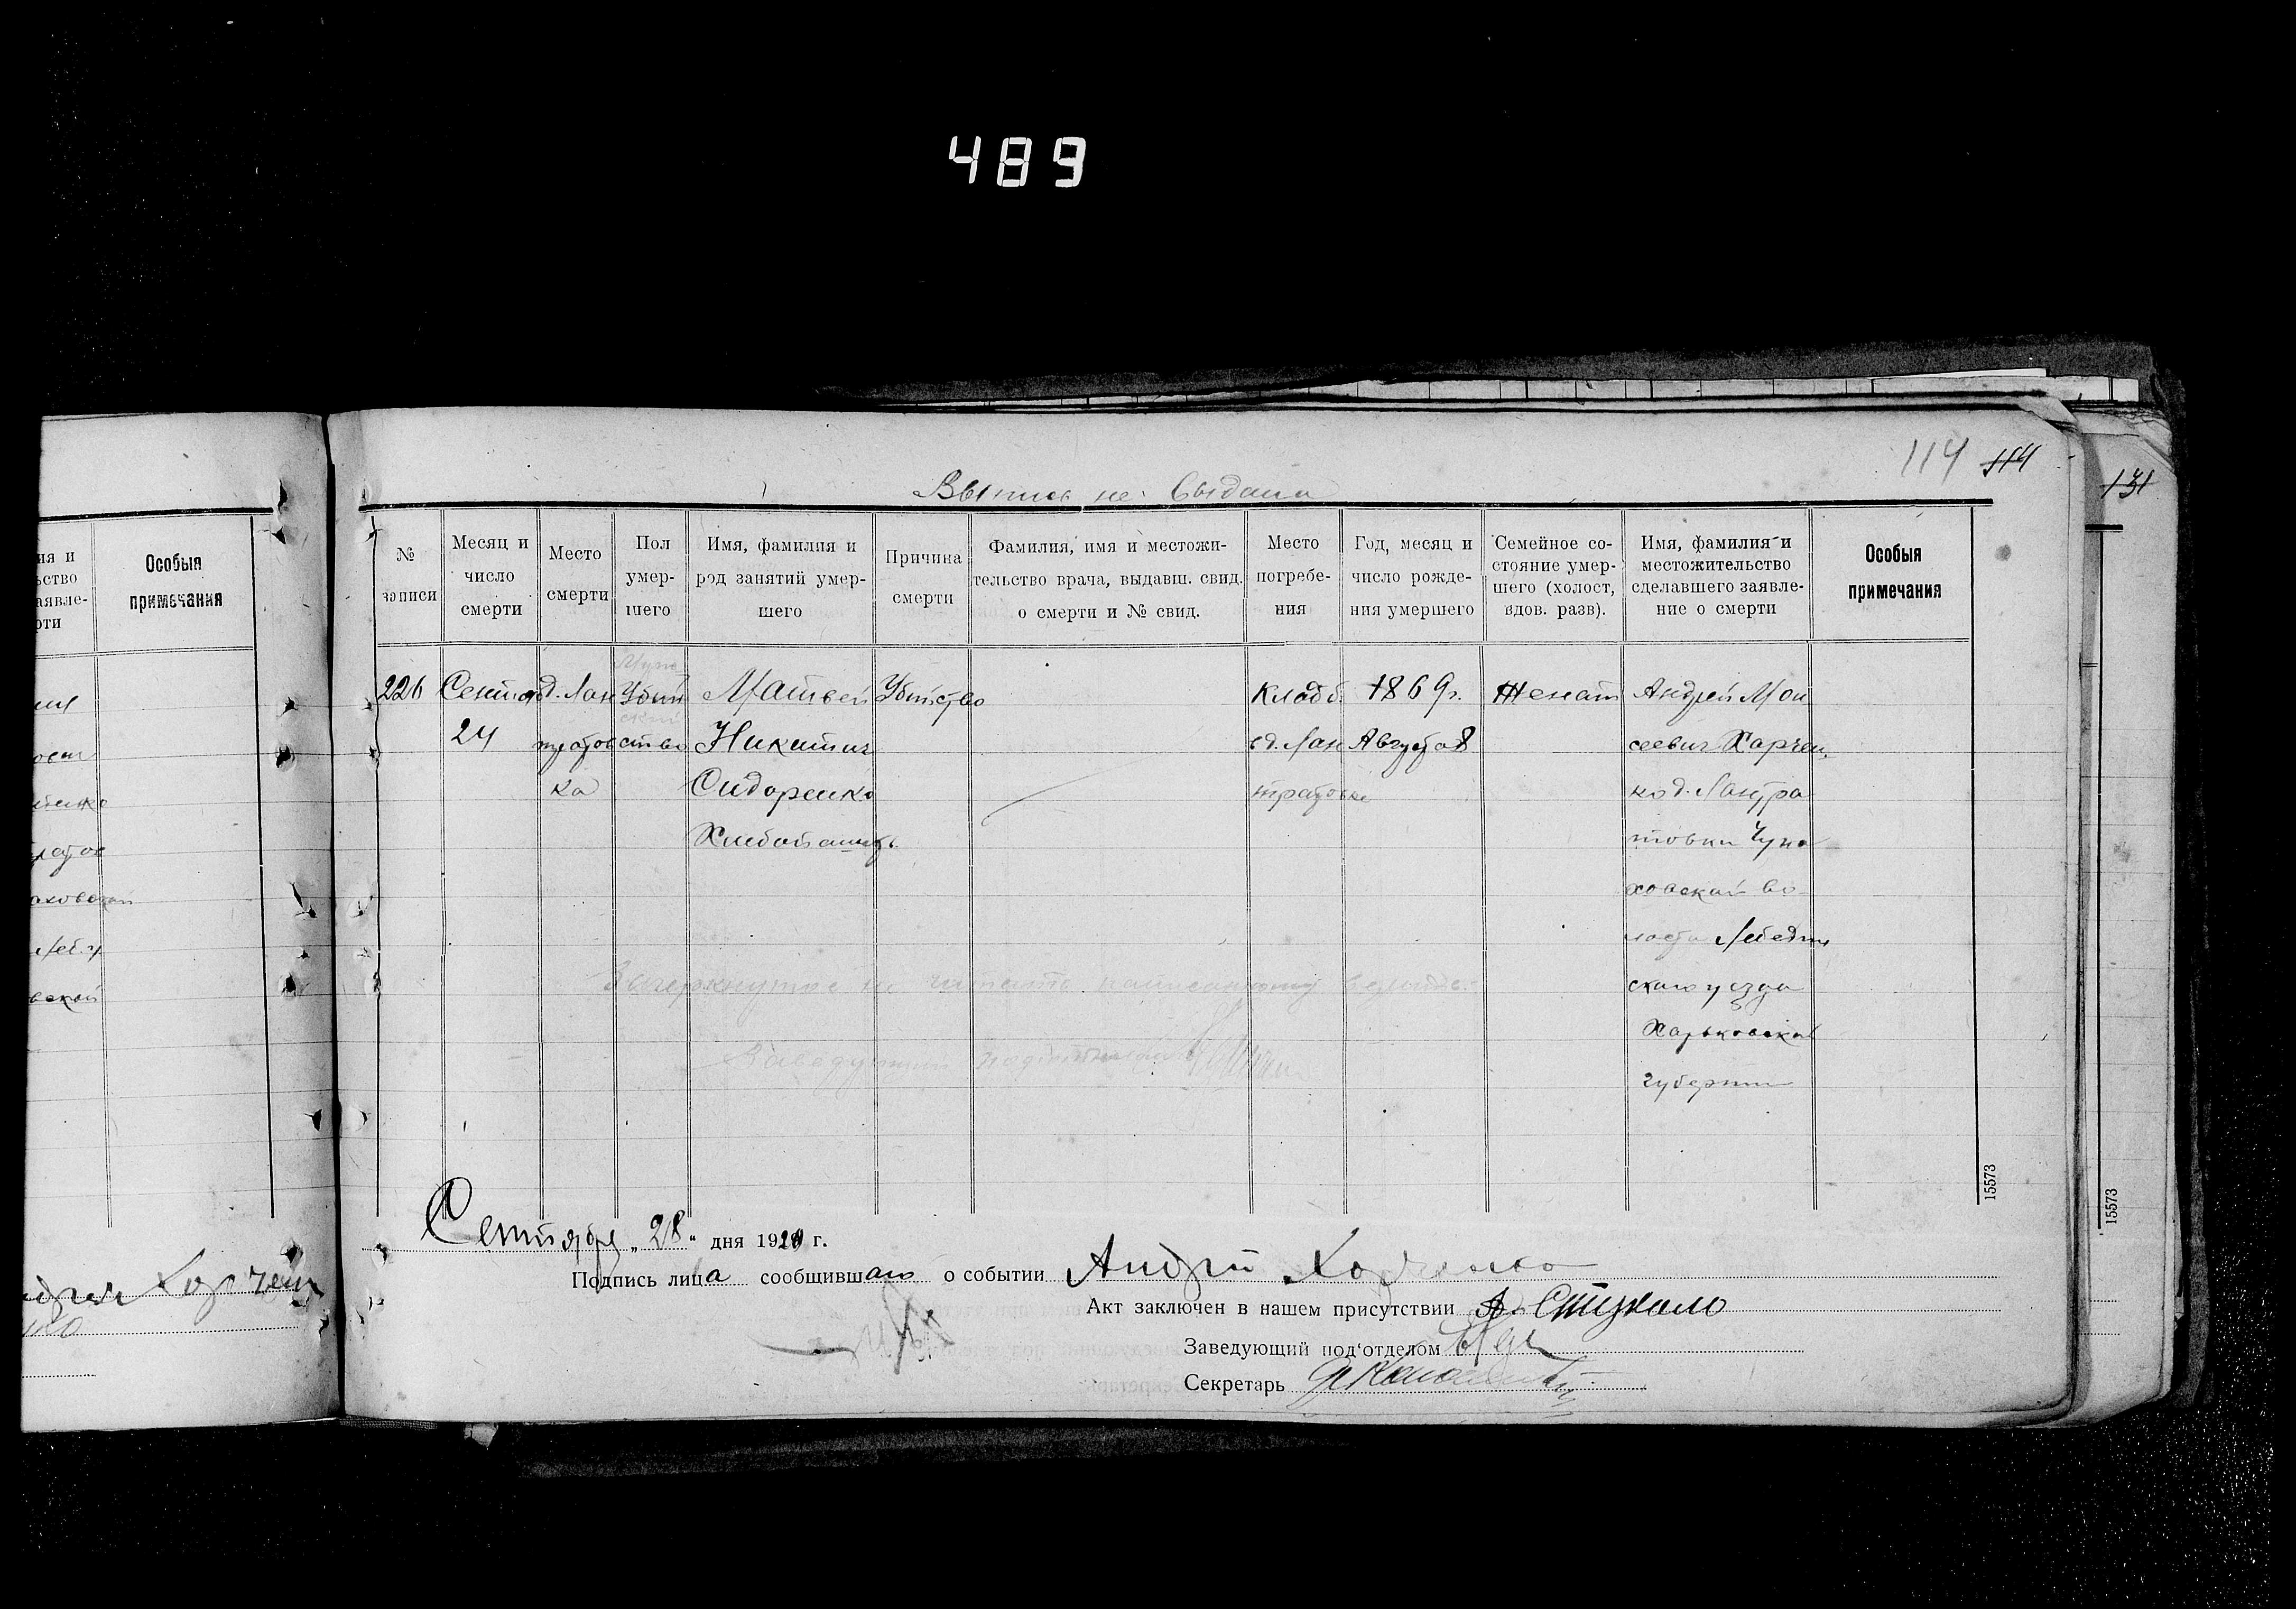 489
114 114
131
Выпись не выдана
ия и
ьство
аявле-
рти
Особыя
примечания
№
записи
Месяц и
число
смерти
Место
смерти
Пол
умер-
шего
Имя, фамилия и
род занятий умер-
шего
Причина
смерти
Фамилия, имя и местожи-
тельство врача, выдавш. свид.
о смерти и № свид.
Место
погребе-
ния
Год, месяц и
число рожде-
ния умершего
Семейное со-
стояние умер-
шего (холост,
вдов. разв).
Имя, фамилия и
местожительство
сделавшего заявле-
ние о смерти
Особыя
примечания
226
24
д. Лан
тратов
ка
Муж
ской
Убий
ство
Матвей
Никитич
Сидоренко
Убийство
Кладб.
д. Лан
тратовке
1869 г.
Августа 8
Женат
Андрей Мои
сеевич Харчен
ко д. Лантра
товки Чупа
ховской во
лости Лебедин
скаго уезда
Харьковской
губернии
Зачеркнутое не читать
Заведующий
15573
15573
Сентября „28“ дня 1920 г.
Подпись лица сообщившаго о событии Андрій Харченко
Акт заключен в нашем присутствии Стукало
Заведующий под'отделом
Секретарь